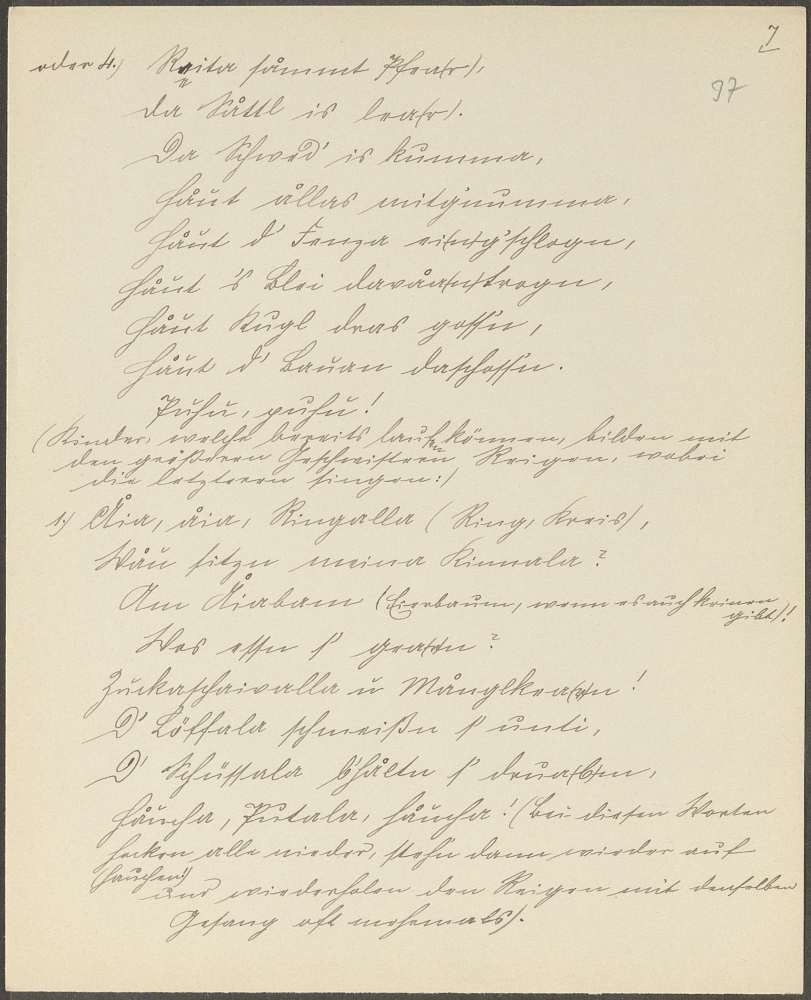 7
97
oder 4.) Reita såmmt Pfea(r)d,
da Såttl is lea(r).
Da Schwed' is kumma,
håut ållas mitg'numma,
håut d' Fenza ei(n)g'schlogn,
håut 's Blei davåa(n)trogn,
håut Kugl dras goss'n,
håut d' Bauan daschoss'n.
Puhu, puhu!
(Kinder, welche bereits laufen können, bilden mit
den größeren Geschwistern Reigen, wobei
die letzteren singen:)
1.) Åia, åia, Ringalla (Ring, Kreis),
Wåu sitzn meina Kinnala?
Am Åiabam (Eierbaum, wenn es auch keinen
gibt)!
Wos essn s' gea(r)n?
Zuckaschaivalla u Månglkea(r)n!
D' Löffala schmeißn s' unti,
D' Schüssala b'håltn s' drua(b)m,
håucha, Putala, håucha! (Bei diesen Worten
hocken alle nieder, stehn dann wieder auf
(hauchen)
und wiederholen den Reigen mit denselben
Gesang oft mehrmals).